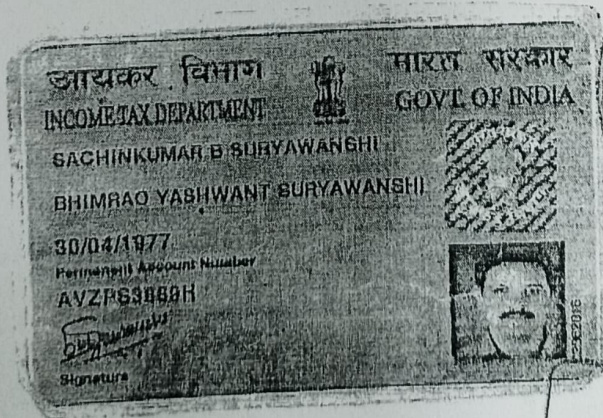 आयकर विभाग
भारत सरकार
INCOME TAX DEPARTMENT
GOVT. OF INDIA
SACHINKUMAR B SURYAWANSHI
BHIMRAO YASHWANT SURYAWANSHI
30/04/1977
Permanent Account Number
Signature